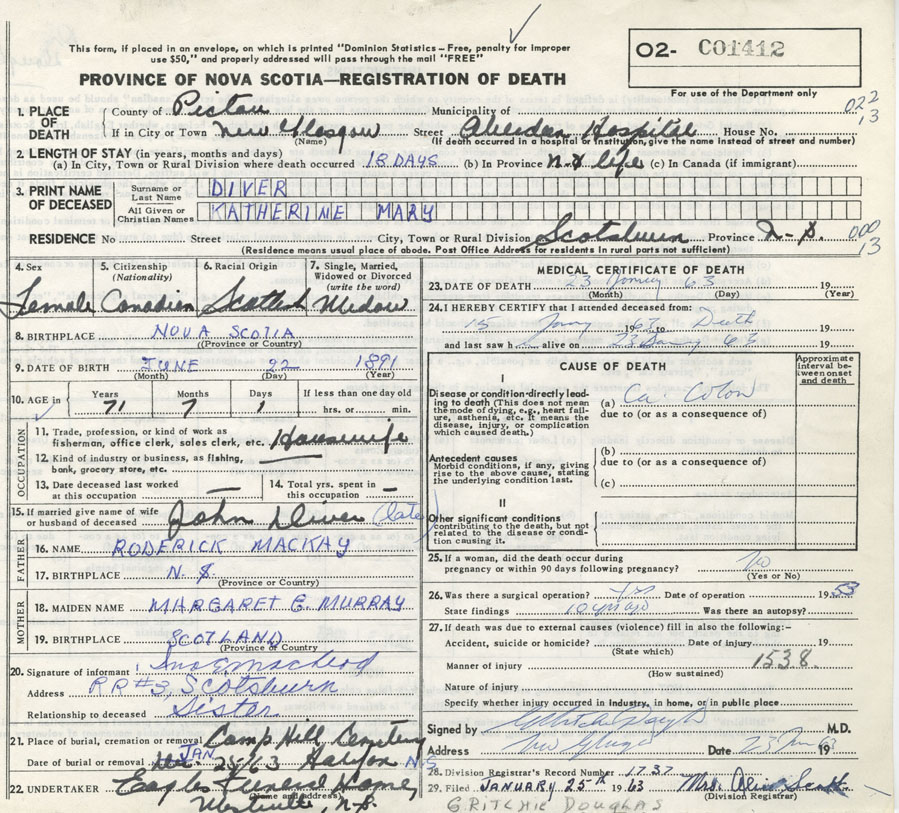 This form, if placed in an envelope, on which is printed "Dominion Statistics – Free, penalty for improper
use $50," and properly addressed will pass through the mail "FREE"
O2- C01412
For use of the Department only
PROVINCE OF NOVA SCOTIA—REGISTRATION OF DEATH
022
13
1. PLACE OF DEATH
County of Pictou Municipality of
If in City or Town New Glasgow Street Aberdeen Hospital House No.
(Name) (If death occurred in a hospital or institution, give the name instead of street and number)
2. LENGTH OF STAY (in years, months and days)
(a) In City, Town or Rural Division where death occurred 18 DAYS (b) In Province life (c) In Canada (if immigrant)
3. PRINT NAME OF DECEASED
Surname or Last Name DIVER
All Given or Christian Names KATHERINE MARY
000
13
RESIDENCE No Street City, Town or Rural Division Scotsburn Province N.S.
(Residence means usual place of abode. Post Office Address for residents in rural parts not sufficient)
4. Sex 5. Citizenship (Nationality) 6. Racial Origin 7. Single, Married, Widowed or Divorced (write the word)
Female Canadian Scottish Widow
8. BIRTHPLACE NOVA SCOTIA
(Province or Country)
9. DATE OF BIRTH JUNE 22 1891
(Month) (Day) (Year)
10. AGE in Years Months Days If less than one day old
71 7 1 hrs. or min.
OCCUPATION
11. Trade, profession, or kind of work as
fisherman, office clerk, sales clerk, etc. Housewife
12. Kind of industry or business, as fishing,
bank, grocery store, etc. —
13. Date deceased last worked
at this occupation —
14. Total yrs. spent in
this occupation –
15. If married give name of wife
or husband of deceased John Diver (late)
FATHER
16. NAME RODERICK MACKAY
17. BIRTHPLACE N.S.
(Province or Country)
MOTHER
18. MAIDEN NAME MARGARET E. MURRAY
19. BIRTHPLACE SCOTLAND
Province or Country
20. Signature of informant
Address RR#3, Scotsburn
Relationship to deceased Sister
21. Place of burial, cremation or removal Camp Hill Cemetery
Date of burial or removal JAN 25/63 Halifax N.S
22. UNDERTAKER Eagles Funeral Home,
(Name and address)
Westville, N.S.
MEDICAL CERTIFICATE OF DEATH
23. DATE OF DEATH 23 63 19
(Month) (Day) (Year)
24. I HEREBY CERTIFY that I attended deceased from:
15 19 63 to Death
and last saw h alive on 23 63 19
CAUSE OF DEATH
Approximate interval between onset and death
I
Disease or condition directly leading to death (This does not mean
the mode of dying, e.g., heart failure, asthenia, etc. It means the
disease, injury, or complication
which caused death.)
(a) Ca. Colon
due to (or as a consequence of)
Antecedent causes
Morbid conditions, if any, giving
rise to the above cause, stating
the underlying condition last.
(b)
due to (or as a consequence of)
(c)
II
Other significant conditions
contributing to the death, but not
related to the disease or condition causing it.
25. If a woman, did the death occur during
pregnancy or within 90 days following pregnancy? No
(Yes or No)
26. Was there a surgical operation? Yes Date of operation 1953
State findings 10 yrs ago Was there an autopsy?
27. If death was due to external causes (violence) fill in also the following:–
Accident, suicide or homicide? Date of injury 19
(State which)
Manner of injury 1538.
(How sustained)
Nature of injury
Specify whether injury occurred in Industry, in home, or in public place
Signed by M.D.
Address New Glasgow Date 23 19
28. Division Registrar's Record Number 1737
29. Filed JANUARY 25th 1963 Mrs. Scott
(Division Registrar)
G. RITCHIE DOUGLAS